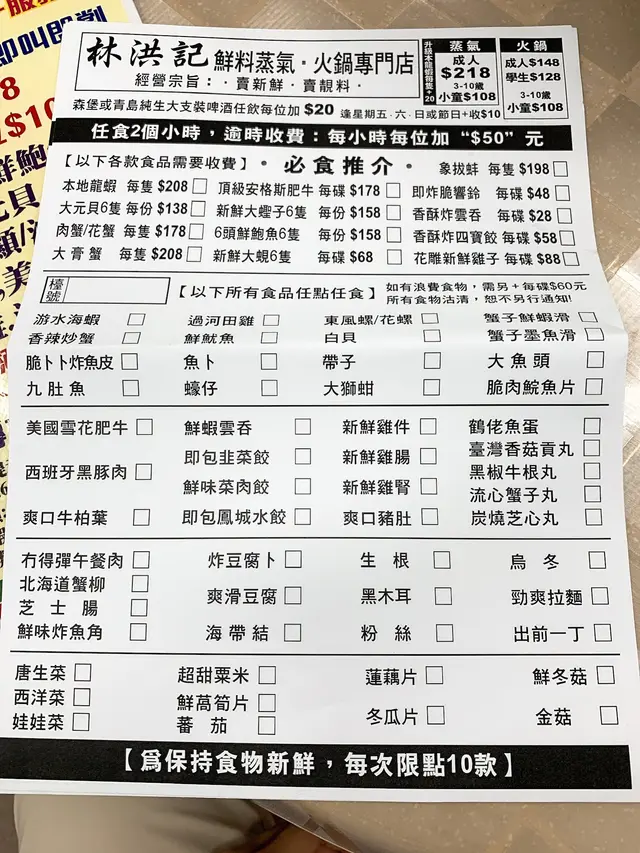 林洪記 鮮料蒸氣·火鍋專門店
經營宗旨：·賣新鮮·賣靚料·
升級本龍蝦每隻+20
蒸氣
成人
$218
3-10歲
小童$108
火鍋
成人$148
學生$128
3-10歲
小童$108
森堡或青島純生大支裝啤酒任飲每位加 $20 逢星期五·六·日或節日+收$10
任食2個小時，逾時收費：每小時每位加“$50”元
【以下各款食品需要收費】·必食推介· 象拔蚌 每隻$198
本地龍蝦 每隻$208 頂級安格斯肥牛 每碟$178 即炸脆響鈴 每碟$48
大元貝6隻 每份$138 新鮮大蟶子6隻 每份$158 香酥炸雲吞 每碟$28
肉蟹/花蟹 每隻$178 6頭鮮鮑魚6隻 每份$158 香酥炸四寶餃 每碟$58
大膏蟹 每隻$208 新鮮大蜆6隻 每碟$68 花雕新鮮雞子 每碟$88
檯號 【以下所有食品任點任食】 如有浪費食物，需另+每碟$60元
所有食物沽清，恕不另行通知!
游水海蝦 過河田雞 東風螺/花螺 蟹子鮮蝦滑
香辣炒蟹 鮮魷魚 白貝 蟹子墨魚滑
脆卜卜炸魚皮 魚卜 帶子 大魚頭
九肚魚 蠔仔 大獅蚶 脆肉鯇魚片
美國雪花肥牛 鮮蝦雲吞 新鮮雞件 鶴佬魚蛋
即包韭菜餃 新鮮雞腸 臺灣香菇貢丸
西班牙黑豚肉 黑椒牛根丸
鮮味菜肉餃 新鮮雞腎 流心蟹子丸
爽口牛柏葉 即包鳳城水餃 爽口豬肚 炭燒芝心丸
冇得彈午餐肉 炸豆腐卜 生根 烏冬
北海道蟹柳
爽滑豆腐 黑木耳 勁爽拉麵
芝士腸
鮮味炸魚角 海帶結 粉絲 出前一丁
唐生菜 超甜粟米 蓮藕片 鮮冬菇
西洋菜 鮮萵筍片
娃娃菜 蕃茄 冬瓜片 金菇
【爲保持食物新鮮，每次限點10款】